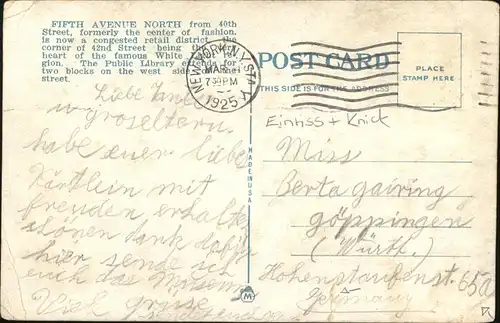 FIFTH AVENUE NORTH from 40th
Street, formerly the center of fashion,
is now a congested retail district, the
corner of 42nd Street being the very
heart of the famous White
gion. The Public Library extends for
two blocks on the west side of the
street.
NEW YORK, N.Y. STA. Y
MAR
7 30 PM
1925
POST CARD
THIS SIDE IS FOR ADDRESS
PLACE
STAMP HERE
MADE IN USA
Liebe
u groseltern.
habe euer liebe
Kärtlein mit
freuden erhalten
schönen dank dafür
hier sende ich
euch das Museum
Viel grüse
Einriss + Knick
Miss
Berta gairing
göppingen
(Württ.)
Hohenstaufenst. 65a
Germany
M